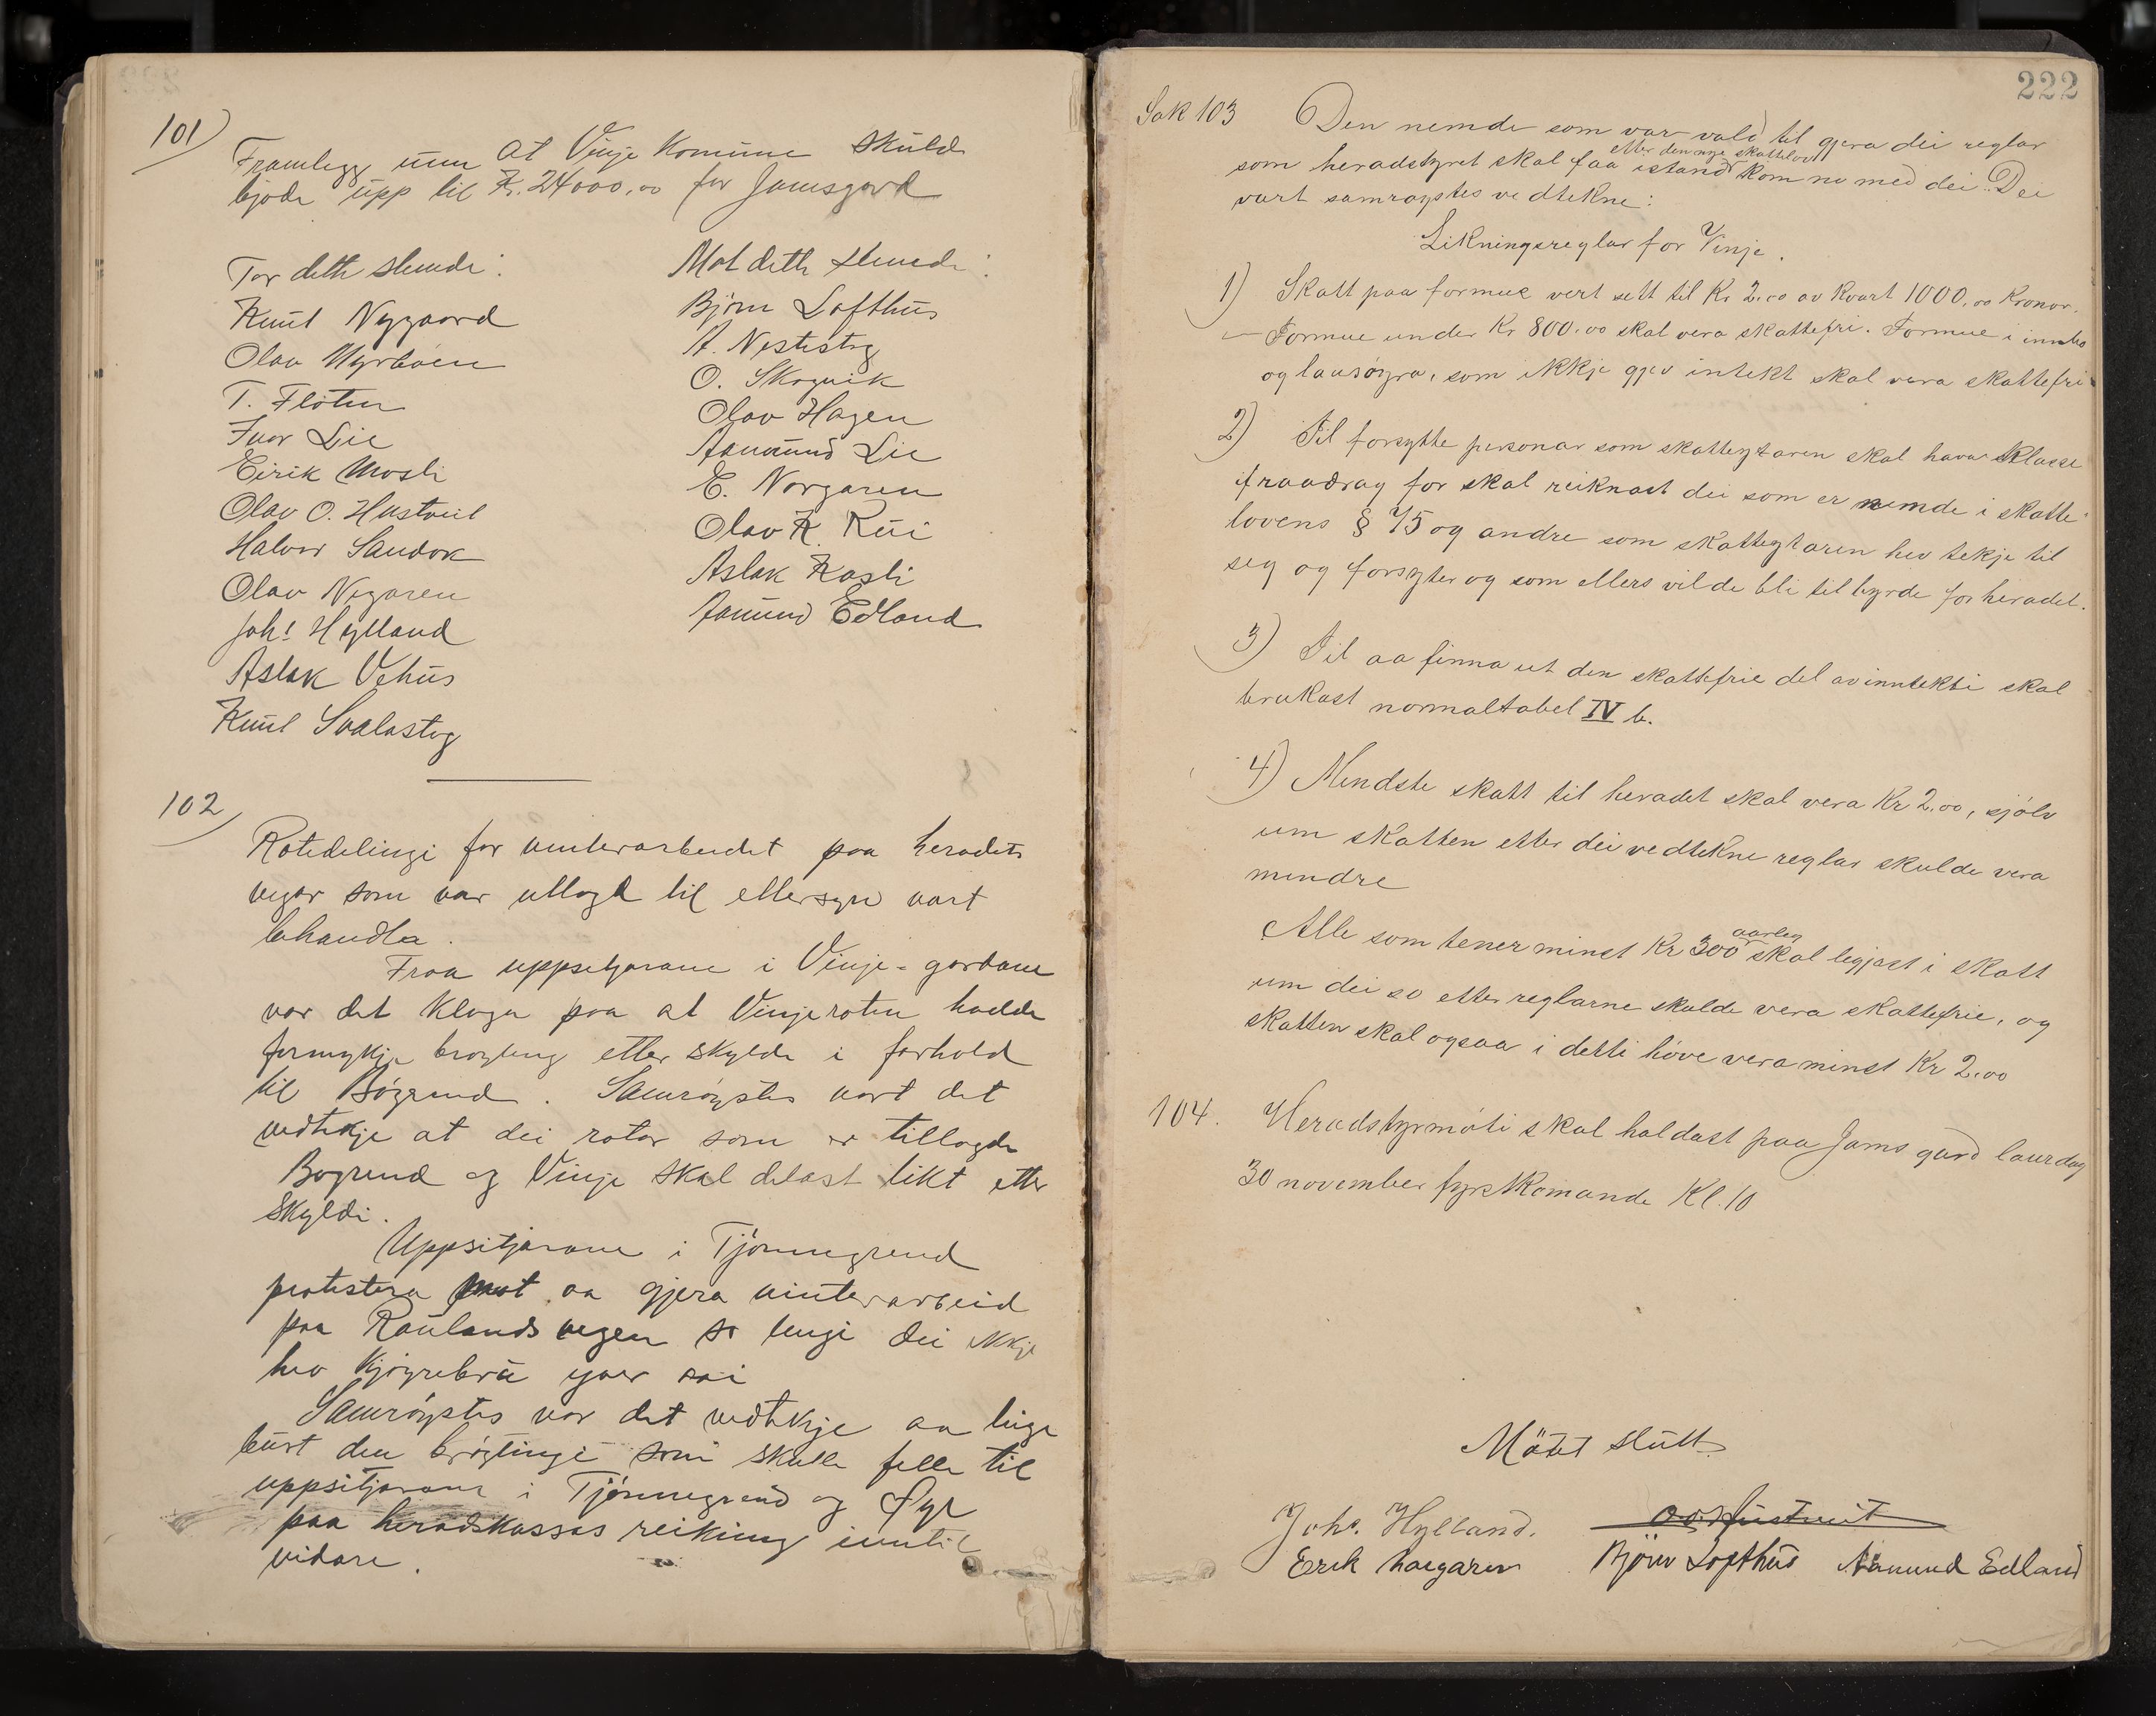 101
Framlegg um At Vinje Komune skuld
bjoda upp til Kr. 24000,00 for Jamsgard
For dette stemde:
Knut Nygaard
Olav Myrbøen
T. Flöten
Ivar Lie
Eirik Mosli
Olav O. Hustveit
Halvor Sandok
Olav Nigaren
Johs Hylland
Aslak Vehus
Knut Svalastog
Mot dette stemde:
Björn Lofthus
A. Nestestog
O. Skognik
Olav Hagen
Aamund Lie
E. Norgaren
Olav K. Rui
Aslak Kasli
Aamund Edland
102
Rotedelingi for vinterarbeidet paa heradets
vegar som var utlagt til ettersyn vart
behandla.
Fraa uppsitjarane i Vinje-gardane
var det klaga paa at Vinjeroten hadde
formykje brøyting etter skyldi i forhold
til Bögrend. Samrøystes vart det
vedtekje at dei rotor som er tillagde
Bøgrend og Vinje skal delast likt etter
skyldi.
Uppsitjarane i Tjönnegrend
protistera mot aa gjera vinterarbeid
paa Raulandsvegen so lengi dei ikkje
hev kjøyrebru yver aai
Samrøystes var det vedtekje aa leige
burt den brøytingi som skulle felle til
uppsitjarane i Tjönnegrend og
paa heradskassas reikning inntil
vidare.
222
Sak 103 Den nemde som var vald til gjera dei reglar
etter den nye skattelov
som heradstyret skal faa istand kom no med dei. Dei
vart samrøystes vedtekne:
Likningsreglar for Vinje.
1) Skatt paa formue vert sett til Kr 2.00 av kvart 1000,00 Kronor.
— Formue under Kr 800.00 skal vera skattefri. Formue i innbo
og lausøyra, som ikkje gjev intekt skal vera skattefri.
2) Til forsytte personar som skatteytaren skal hava klasse
ifraadrag for skal reiknast dei som er nemde i skatte
lovens § 75 og andre som skatteytaren hev tekje til
seg og forsyter og som ellers vilde bli til byrde for heradet.
3) Til aa finna ut den skattefrie del av inntekti skal
brukast normaltabel IV b.
4) Mindste skatt til heradet skal vera Kr 2.00, sjølv
um skatten etter dei vedtekne reglar skulde vera
mindre
Alle som tener minst Kr 300 aarleg skal legjast i skatt
um dei so etter reglarne skulde vera skattefrie, og
skatten skal ogsaa i detti høve vera minst Kr 2.00
104. Heradstyrmøti skal haldast paa Jamsgard laurdag
30 november fyrstkomande Kl. 10
Mötet slutt
Johs. Hylland. O. O. Hustveit
Eirik Norgaren Björn Lofthus Aamund Edland